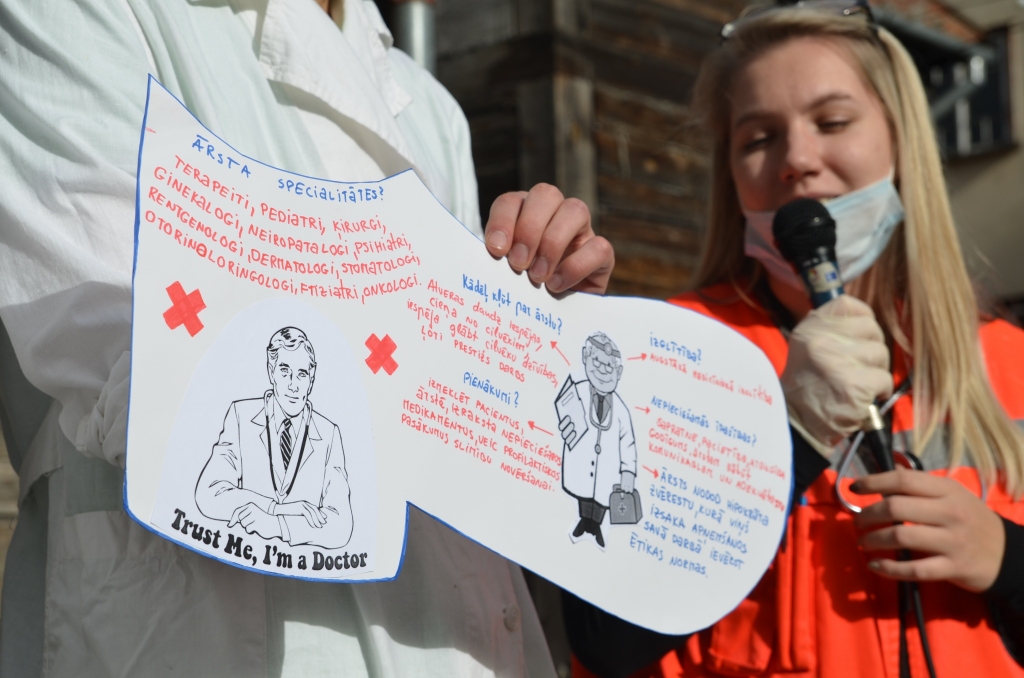 ĀRSTA SPECIALITĀTES?
TERAPEITI, PEDIATRI, ĶIRURGI,
GINEKALOGI, NEIROPATALOGI, PSIHIATRI,
RENTGENOLOGI, DERMATOLOGI, STOMATOLOGI,
OTORINOLORINGOLOGI, FTIZIATRI, ONKOLOGI.
Trust Me, I'm a Doctor
Kādēļ kļūt par ārstu?
ATVERAS DAUDZ IESPĒJAS,
CIEŅA NO CILVĒKIEM,
IESPĒJA GLĀBT CILVĒKU DZĪVĪBAS,
ĻOTI PRESTIŽS DARBS
PIENĀKUMI?
IZMEKLĒT PACIENTUS,
ĀRSTĒ, IZRAKSTA NEPIECIEŠAMOS
MEDIKAMENTUS, VEIC PROFILAKTISKOS
PASĀKUMUS SLIMĪBU NOVĒRŠANAI.
IZGLĪTĪBA?
AUGSTĀKĀ MEDICĪNISKĀ IZGLĪTĪBA
NEPIECIEŠAMĀS ĪPAŠĪBAS?
SAPRATNE, PACIETĪBA, ATBILDĪBA
KOMUNIKABLAM UN
ĀRSTS NODOD HIPOKRĀTA
ZVĒRESTU, KURĀ VIŅŠ
IZSAKA APŅEMŠANOS
SAVĀ DARBĀ IEVĒROT
ĒTIKAS NORMAS.